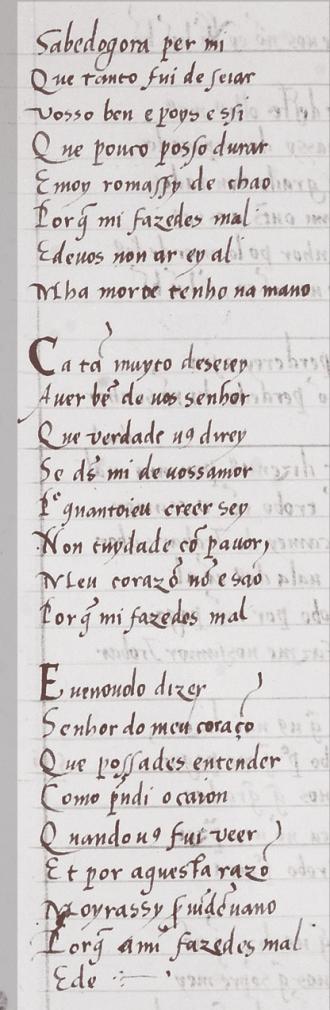 Sabedogora per mi
Que tanto fui de seiar
vosso ben e poys e ssi
Que pouco posso durar
E moyro massy de chao
Porq̃ mi fazedes mal
Edeuos non ar ey al
Mha morte tenho na mano
Ca tã muyto deseiey
Auer bẽ de uos senhor
Que verdade uꝯ direy
Se ds̃ mi de uossamor
Pᵒ quantoieu creer sey
Non cuydade cõ pauor
Meu corazõ nõ e sao
Porq̃ mi fazedes mal
E uenouolo dizer
Senhor do meu coraçõ
Que possades entender
Como p̃ndi o caion
Quando uꝯ fui veer
Et por aquesta razõ
Moyrassy
Porq̃ ami fazedes mal
Ede